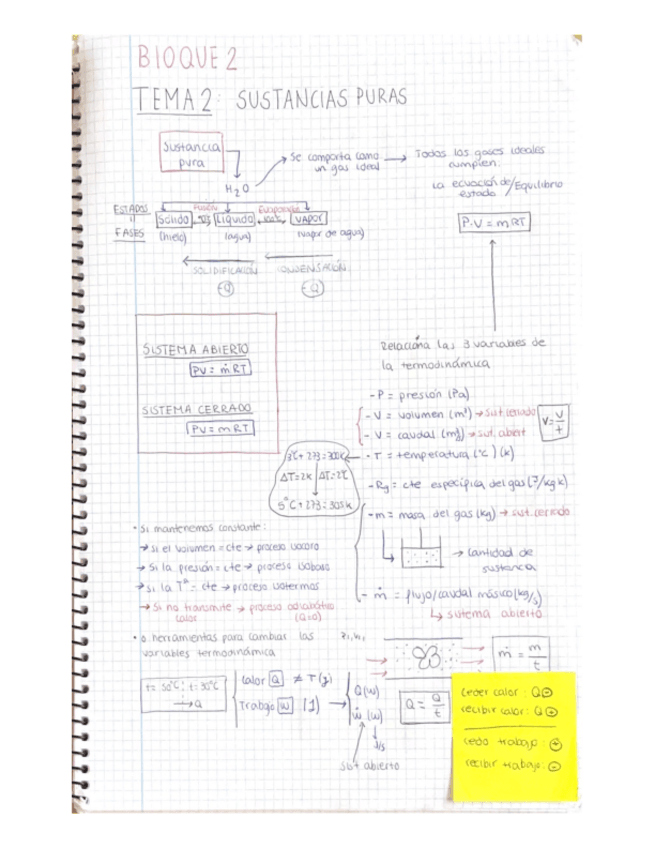 BIOQUE 2
TEMA 2: SUSTANCIAS PURAS
Sustancia
pura
H2O
Se comporta como
un gas ideal
Todos los gases ideales
cumplen:
La ecuación de/Equilibrio
estado
P·V = mRT
ESTADOS
y
FASES
Fusión
Evaporación
Sólido
Líquido
VAPOR
(hielo)
(agua)
(vapor de agua)
SOLIDIFICACIÓN
CONDENSACIÓN
-Q
-Q
SISTEMA ABIERTO
PV = ṁRT
SISTEMA CERRADO
PV = mRT
Relaciona las 3 variables de
la termodinámica
- P = presión (Pa)
- V = volumen (m³) → sist. cerrado
- V = caudal → sist. abiert
V = V/t
- T = temperatura (°C) (K)
+ 273 = 300K
ΔT=2K ΔT=2°C
5°C + 273 =
- Rg = cte específica del gas (J/kg K)
- m = masa del gas (kg) → sist. cerrado
→ cantidad de
sustancia
- ṁ = flujo/caudal másico (kg/s)
↳ sistema abierto
ṁ = m/t
• Si mantenemos constante:
→ si el volumen = cte → proceso isocoro
→ Si la presión = cte → proceso isobaro
→ si la Tª = cte → proceso isotermos
→ Si no transmite → proceso adiabático
calor (Q=0)
• herramientas para cambiar las
variables termodinámica
t = 50°C t = 30°C
→ Q
Calor Q ≠ T
Trabajo W (J)
Q (W)
Ẇ (W)
J/s
Sist abierto
Q = Q/t
ceder calor: Q -
recibir calor: Q +
cedo trabajo: +
recibir trabajo: -